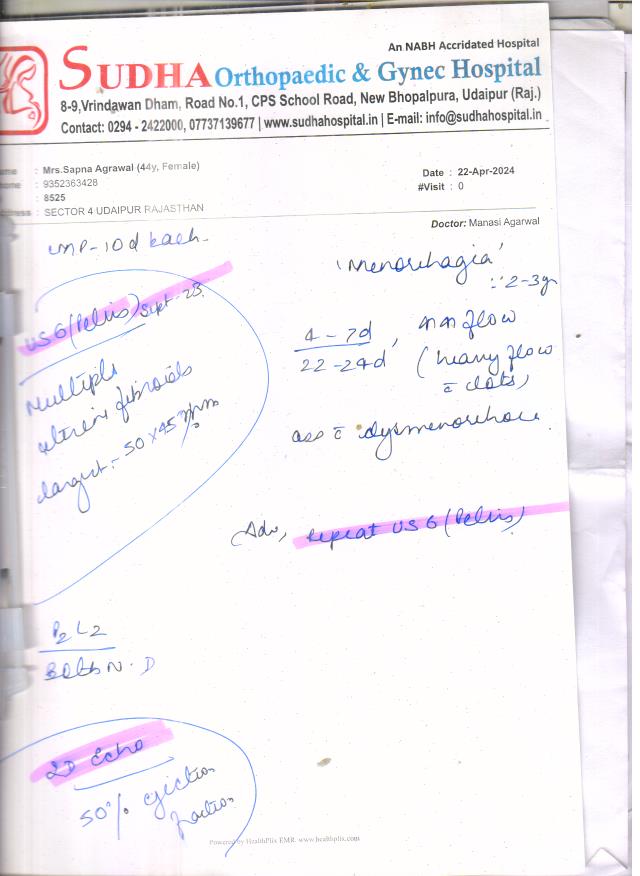 An NABH Accridated Hospital
SUDHA Orthopaedic & Gynec Hospital
8-9,Vrindawan Dham, Road No.1, CPS School Road, New Bhopalpura, Udaipur (Raj.)
Contact: 0294 - 2422000, 07737139677 | www.sudhahospital.in | E-mail: info@sudhahospital.in
: Mrs.Sapna Agrawal (44y, Female)
: 9352363428
: 8525
: SECTOR 4 UDAIPUR RAJASTHAN
Date : 22-Apr-2024
#Visit : 0
Doctor: Manasi Agarwal
LMP - 10d back.
'Menorrhagia'
∵ 2-3yr
USG (Pelvis) Sept-23
Multiple
uterine fibroids
largest :- 50 x 45 mm
4 - 7d, flow
22-24d (heavy flow
c̄ clots)
ass c̄ dysmenorrhoea.
Adv, Repeat USG (Pelvis)
P2 L2
Both N.D
2D Echo
50% ejection
fraction
Powered by HealthPlix EMR. www.healthplix.com